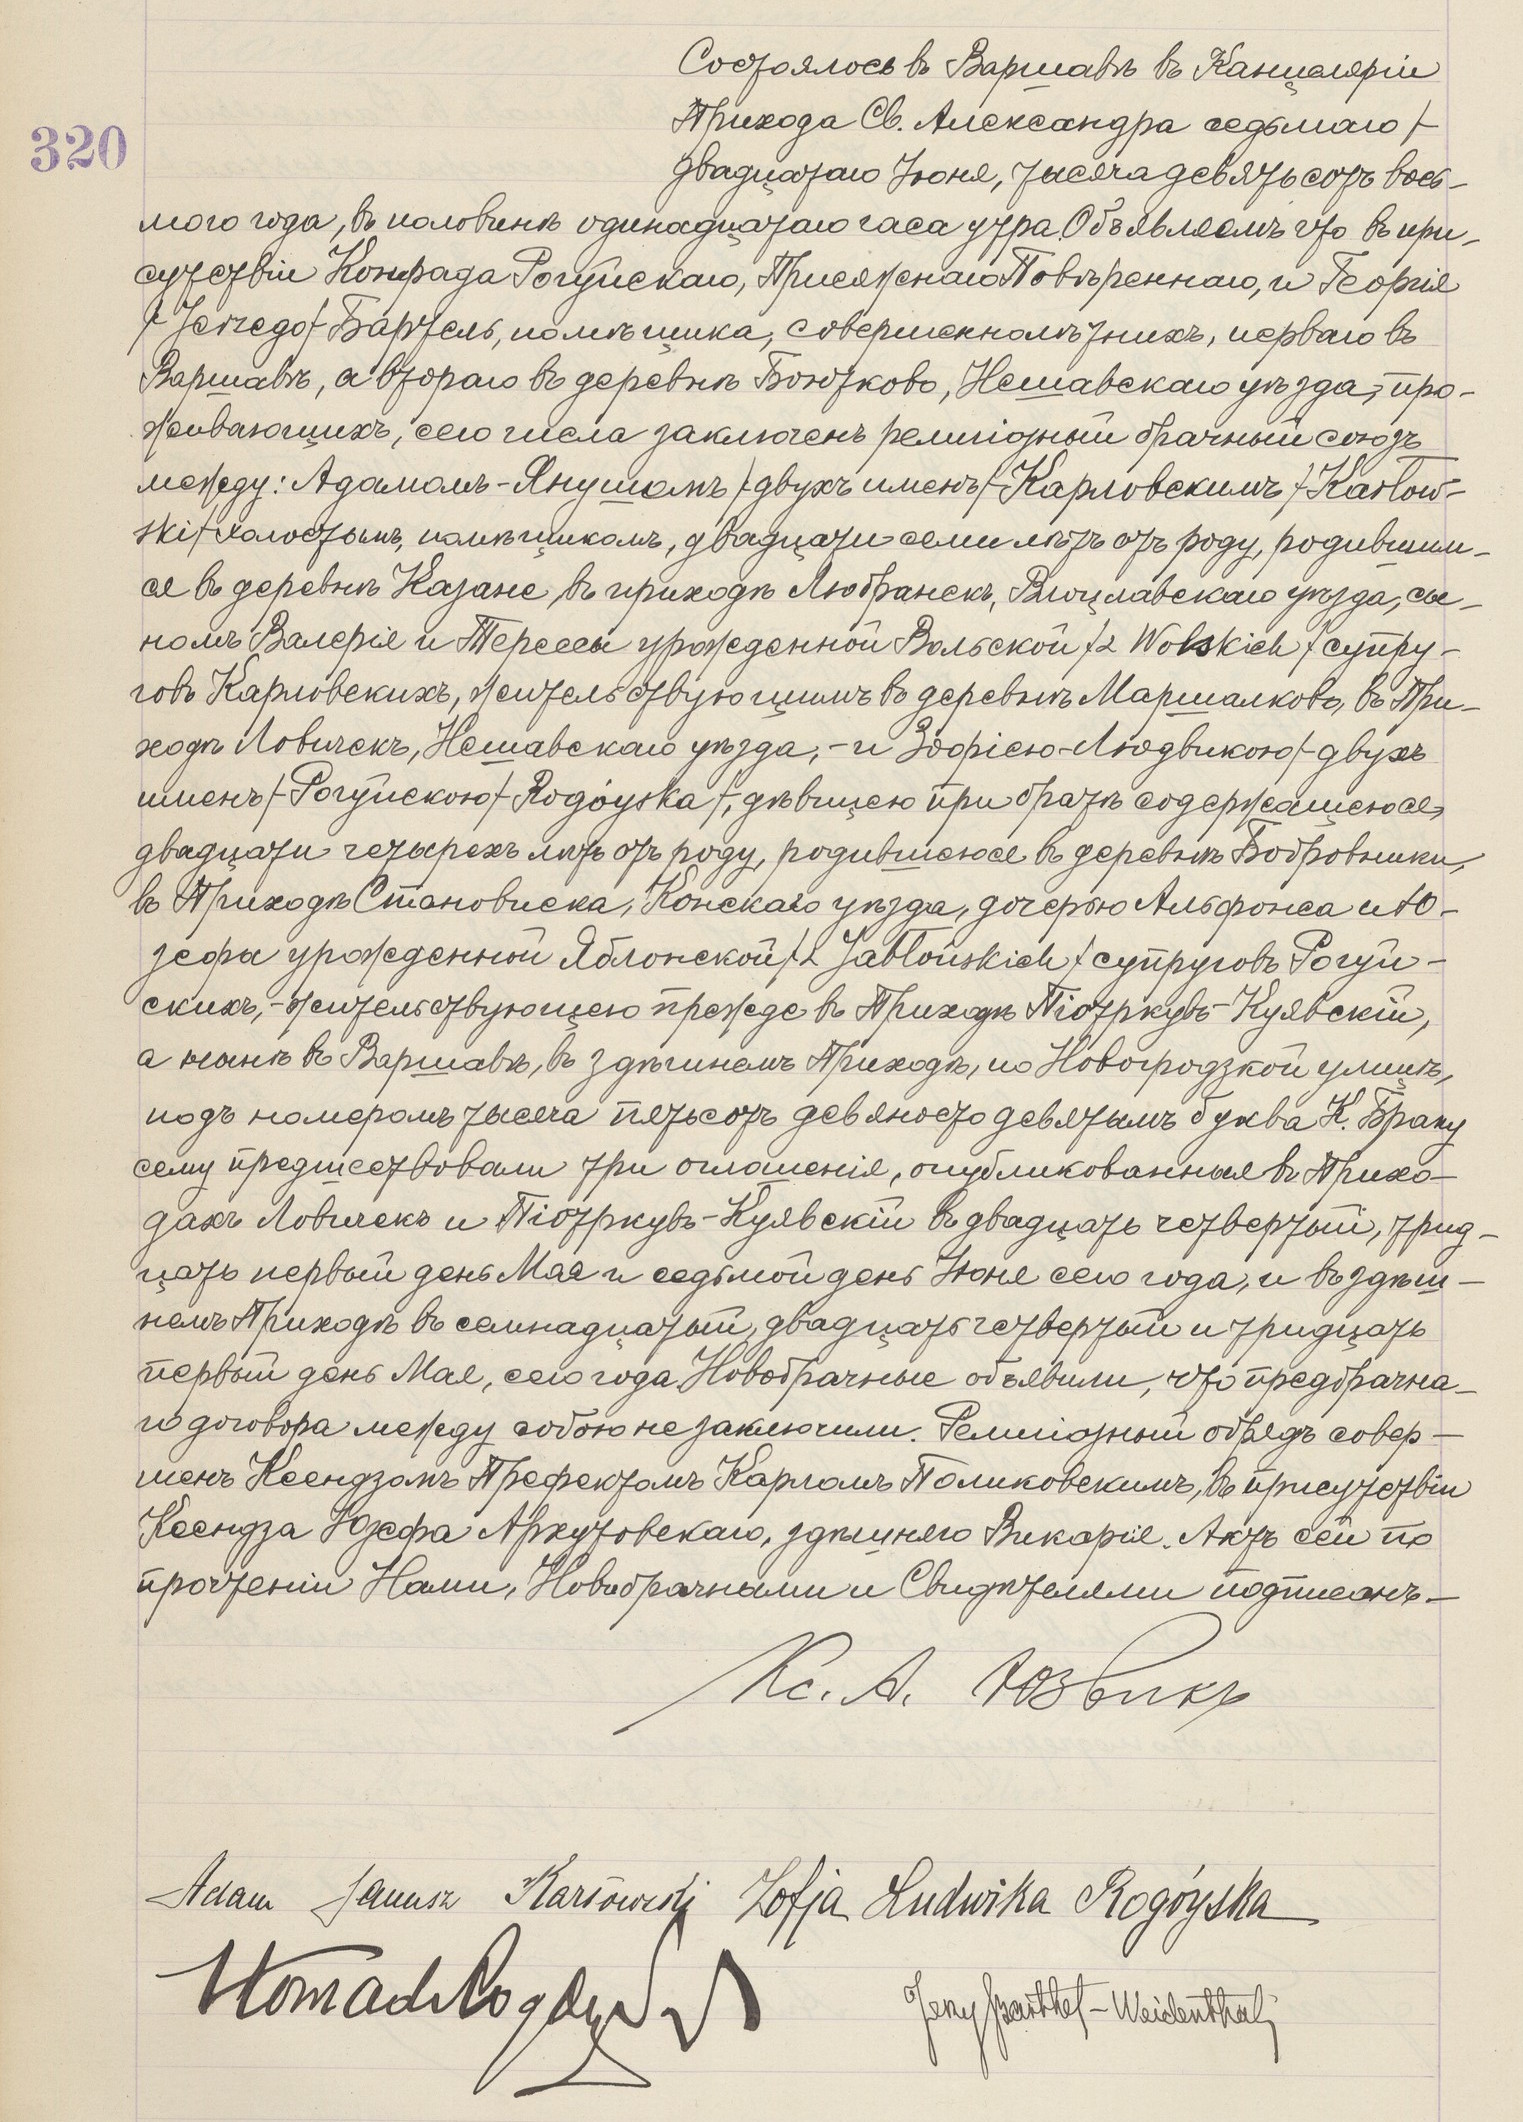 320
Состоялось въ Варшавѣ въ Канцеляріи
Прихода Св. Александра седьмаго /
двадцатаго Іюня, тысяча девятьсотъ вось-
мого года, въ половинѣ одинадцатаго часа утра. Объявляемъ что въ при-
сутствіи Конрада Рогуйскаго, Присяжнаго Повѣреннаго, и Георгія
/ Jerzego / Бартель, помѣщика, совершеннолѣтнихъ, перваго въ
Варшавѣ, а втораго въ деревнѣ Бютково, Нешавскаго уѣзда, про-
живающихъ, сего числа заключенъ религіозный брачный союзъ
между: Адамомъ-Янушомъ / двухъ именъ / Карловскимъ / Karłow-
ski / холостымъ, помѣщикомъ, двадцати семи лѣтъ отъ роду, родившим-
ся въ деревнѣ Казане, въ приходѣ Любранекъ, Влоцлавскаго уѣзда, сы-
номъ Валерія и Терессы урожденной Вольской / z Wolskich / супру-
говъ Карловскихъ, жительствующимъ въ деревнѣ Маршалково, въ При-
ходѣ Ловичекъ, Нешавскаго уѣзда, - и Зофіею-Людвикою / двухъ
именъ / Рогуйскою / Rogóyska /, дѣвицею при братѣ содержащеюся,
двадцати четырехъ лѣтъ отъ роду, родившеюся въ деревнѣ Бобровники,
въ Приходѣ Становиска, Конскаго уѣзда, дочерью Альфонса и Ю-
зефы урожденной Яблонской / z Jabłońskich / супруговъ Рогуй-
скихъ, - жительствующею прежде въ Приходѣ Піотркувъ-Куявскій,
а нынѣ въ Варшавѣ, въ здѣшнемъ Приходѣ, по Новогродзкой улицѣ,
подъ номеромъ тысяча пятьсотъ девяносто девятымъ буква К. Браку
сему предшествовали три оглашенія, опубликованныя въ Прихо-
дахъ Ловичекъ и Піотркувъ-Куявскій въ двадцать четвертый, трид-
цать первый день Мая и седьмой день Іюня сего года, и въ здѣш-
немъ Приходѣ въ семнадцатый, двадцать четвертый и тридцать
первый день Мая, сего года. Новобрачные объявили, что предбрачна-
го договора между собою не заключили. Религіозный обрядъ совер-
шенъ Ксендзомъ Префектомъ Карломъ Поликовскимъ, въ присутствіи
Ксендза Юзефа Аркутовскаго, здѣшняго Викарія. Актъ сей по
прочтеніи Нами, Новобрачными и Свидѣтелями подписанъ. -
Кс. А. Юзвикъ
Adam Janusz Karłowski Zofja Ludwika Rogóyska
Konrad Rogóyski Jerzy Barthel-Weidenthal